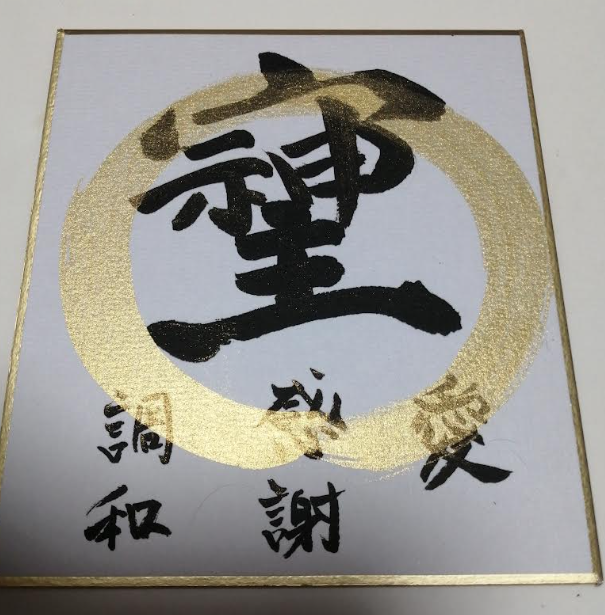 愛
感謝
調和